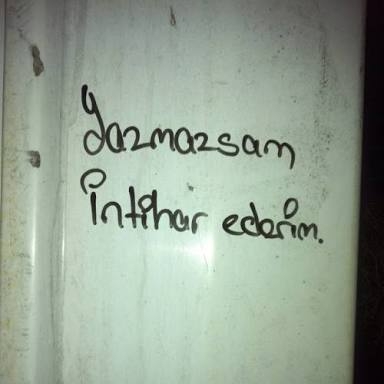 Yazmazsam
İntihar ederim.